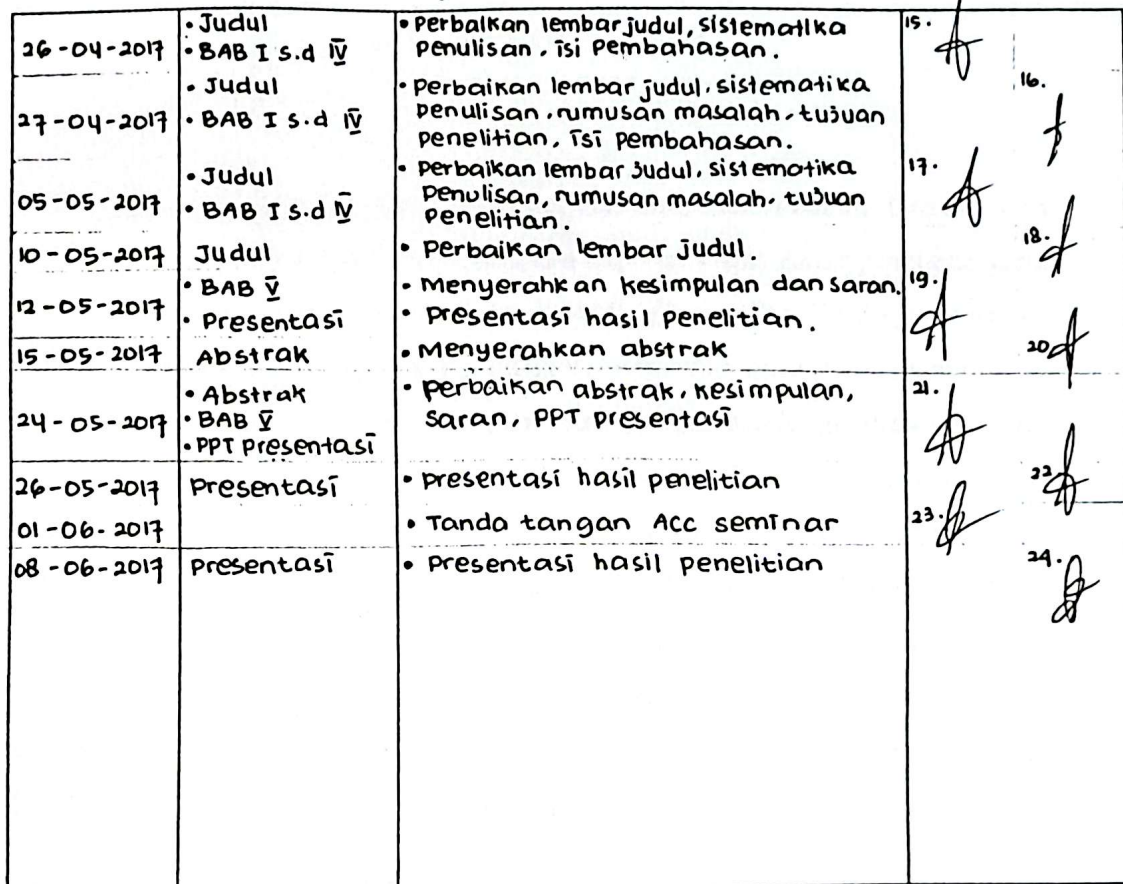 26-04-2017
• Judul
• BAB I s.d IV
• Perbaikan lembar judul, sistematika
penulisan, isi pembahasan.
15.
27-04-2017
• Judul
• BAB I s.d IV
• Perbaikan lembar judul, sistematika
penulisan, rumusan masalah, tujuan
penelitian, isi pembahasan.
16.
05-05-2017
• Judul
• BAB I s.d IV
• Perbaikan lembar judul, sistematika
penulisan, rumusan masalah, tujuan
penelitian.
17.
10-05-2017
Judul
• Perbaikan lembar judul.
18.
12-05-2017
• BAB V
• Presentasi
• Menyerahkan kesimpulan dan saran.
• Presentasi hasil penelitian.
19.
15-05-2017
Abstrak
• Menyerahkan abstrak
20
24-05-2017
• Abstrak
• BAB V
• PPT presentasi
• perbaikan abstrak, kesimpulan,
saran, PPT presentasi
21.
26-05-2017
presentasi
• presentasi hasil penelitian
22
01-06-2017
• Tanda tangan Acc seminar
23.
08-06-2017
presentasi
• Presentasi hasil penelitian
24.